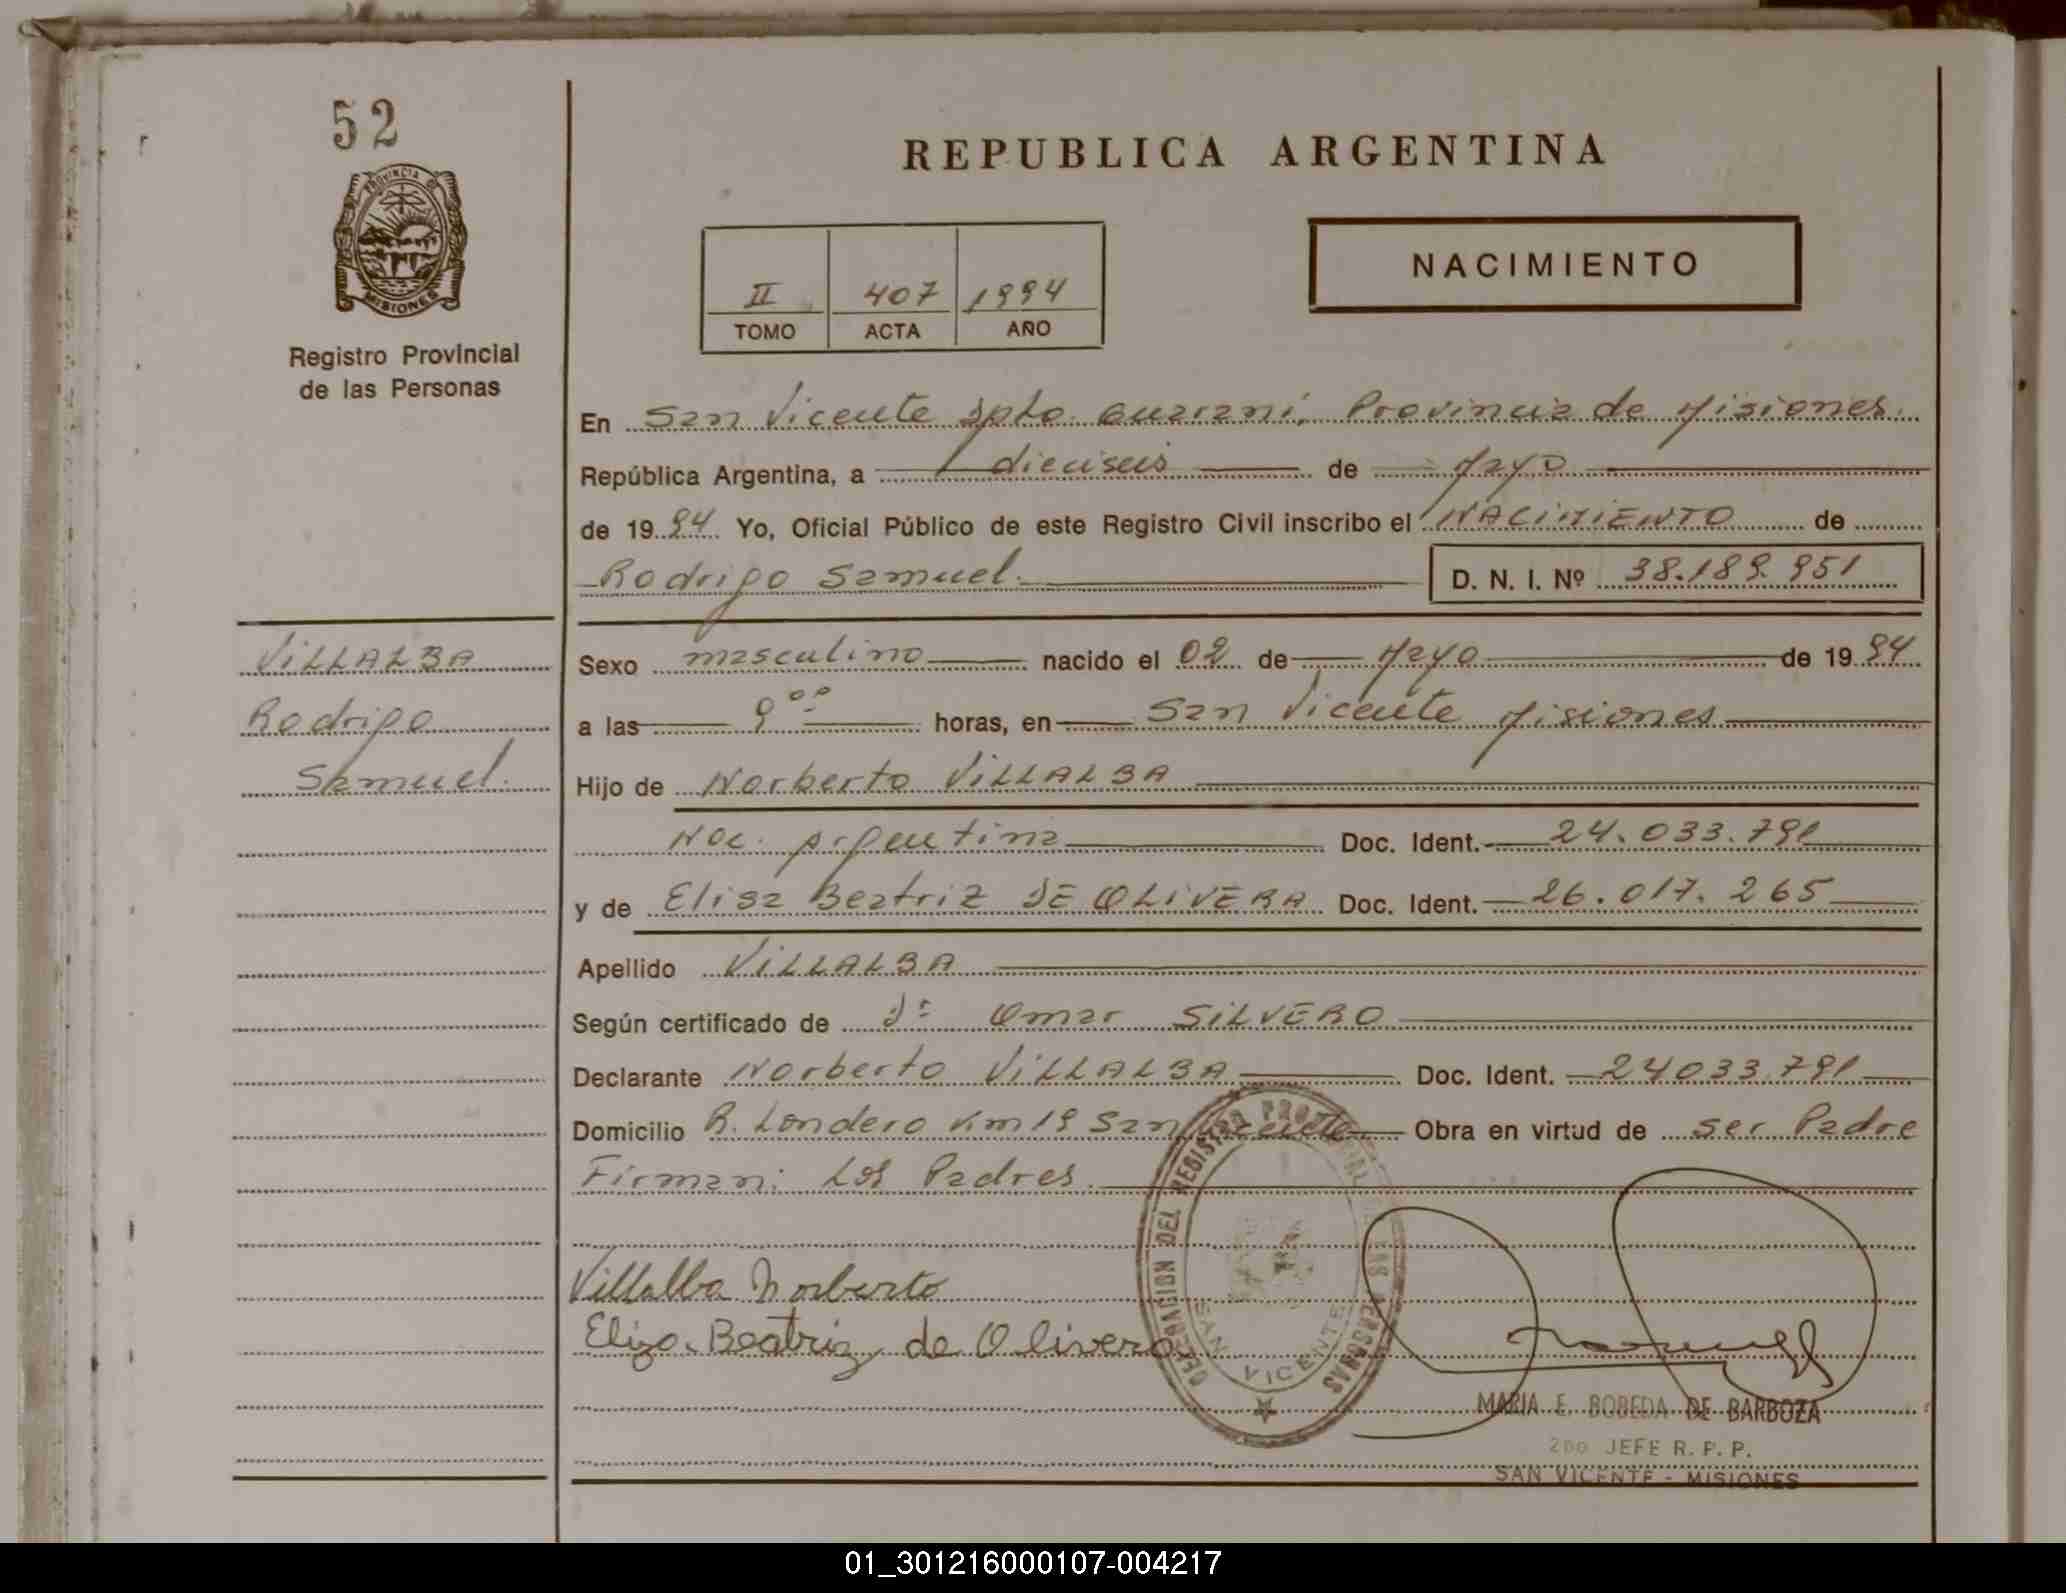 52
PROVINCIA DE
MISIONES
Registro Provincial
de las Personas
REPUBLICA ARGENTINA
II 407 1994
TOMO ACTA AÑO
NACIMIENTO
En San Vicente Dpto. Guaraní, Provincia de Misiones
República Argentina, a dieciseis de Mayo
de 19 94 Yo, Oficial Público de este Registro Civil inscribo el NACIMIENTO de
Rodrigo Samuel. D. N. I. Nº 38.189.951
VILLALBA
Rodrigo
Samuel.
Sexo masculino nacido el 02 de Mayo de 19 94
a las 9 00 horas, en San Vicente Misiones
Hijo de Norberto VILLALBA
Nac. Argentina Doc. Ident. 24.033.791
y de Elisa Beatriz DE OLIVERA Doc. Ident. 26.017.265
Apellido VILLALBA
Según certificado de Dr. Omar SILVERO
Declarante Norberto VILLALBA Doc. Ident. 24033.791
Domicilio R. Londero Km 19 San Vicente Obra en virtud de ser Padre
Firman: Los Padres.
Villalba Norberto
Eliza Beatriz de Olivera
DELEGACION DEL REGISTRO PROVINCIAL DE LAS PERSONAS
SAN VICENTE
MARIA E. BOBEDA DE BARBOZA
2DO JEFE R. P. P.
SAN VICENTE - MISIONES
01_301216000107-004217